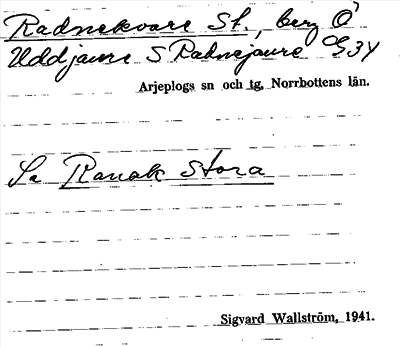 Radnekvare St., berg Ö
Uddjaure S Radnejaure GS 34
Arjeplogs sn och tg, Norrbottens län.
Se Ranak Stora
Sigvard Wallström, 1941.